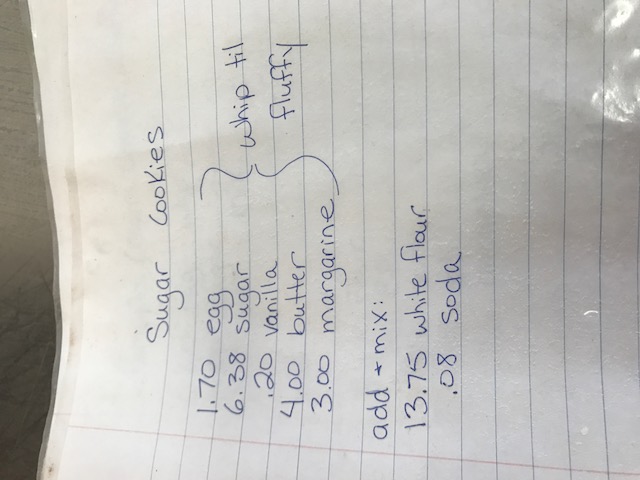 Sugar Cookies
1.70 egg
6.38 sugar
.20 vanilla
4.00 butter
3.00 margarine
whip til
fluffy
add + mix:
13.75 white flour
.08 soda